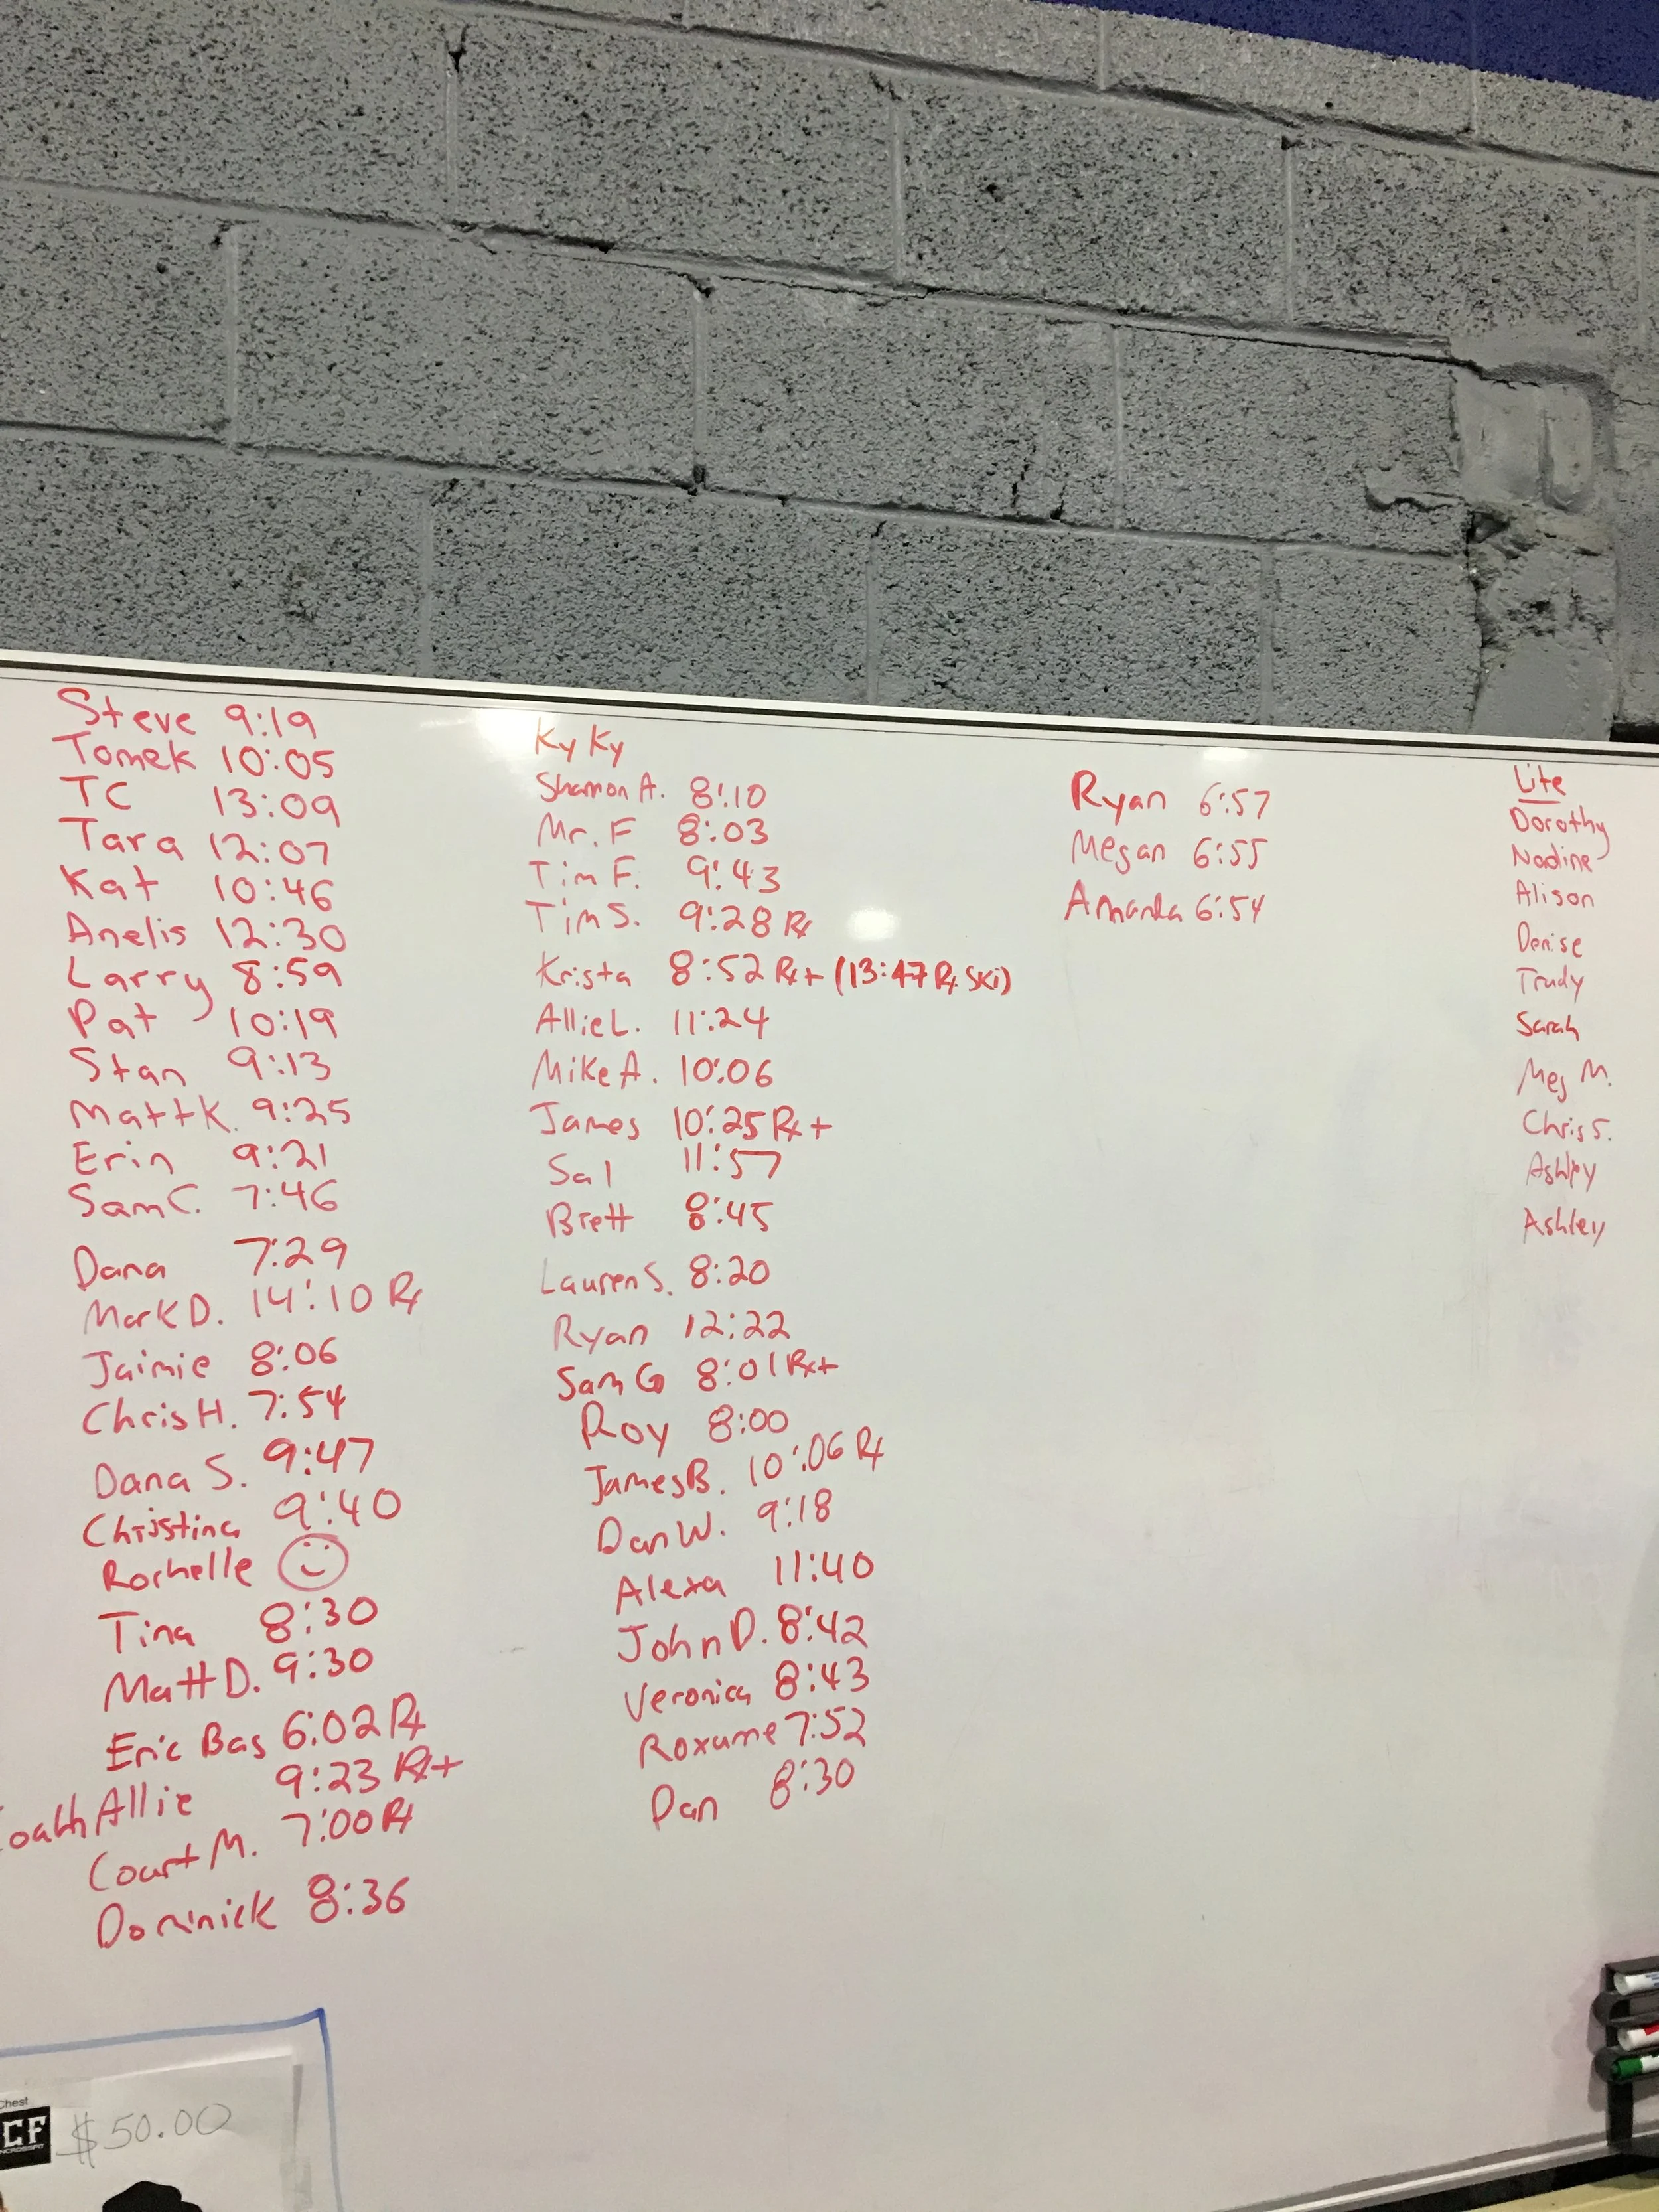 Steve 9:19
Tomek 10:05
TC 13:09
Tara 12:07
Kat 10:46
Anelis 12:30
Larry 8:59
Pat 10:19
Stan 9:13
Matt K. 9:25
Erin 9:21
Sam C. 7:46
Dana 7:29
Mark D. 14:10 Rx
Jaimie 8:06
Chris H. 7:54
Dana S. 9:47
Christina 9:40
Rochelle
Tina 8:30
Matt D. 9:30
Eric Bas 6:02 Rx
Coach Allie 9:23 Rx+
Court M. 7:00 Rx
Dominick 8:36
Ky Ky
Shannon A. 8:10
Mr. F 8:03
Tim F. 9:43
Tim S. 9:28 Rx
Krista 8:52 Rx+ (13:47 Rx Ski)
Allie L. 11:24
Mike A. 10:06
James 10:25 Rx+
Sal 11:57
Brett 8:45
Lauren S. 8:20
Ryan 12:22
Sam G 8:01 Rx+
Roy 8:00
James B. 10:06 Rx
Dan W. 9:18
Alexa 11:40
John D. 8:42
Veronica 8:43
Roxanne 7:52
Dan 8:30
Ryan 6:57
Megan 6:55
Amanda 6:54
Lite
Dorothy
Nadine
Alison
Denise
Trudy
Sarah
Meg M.
Chris S.
Ashley
Ashley
Chest
CF
$50.00